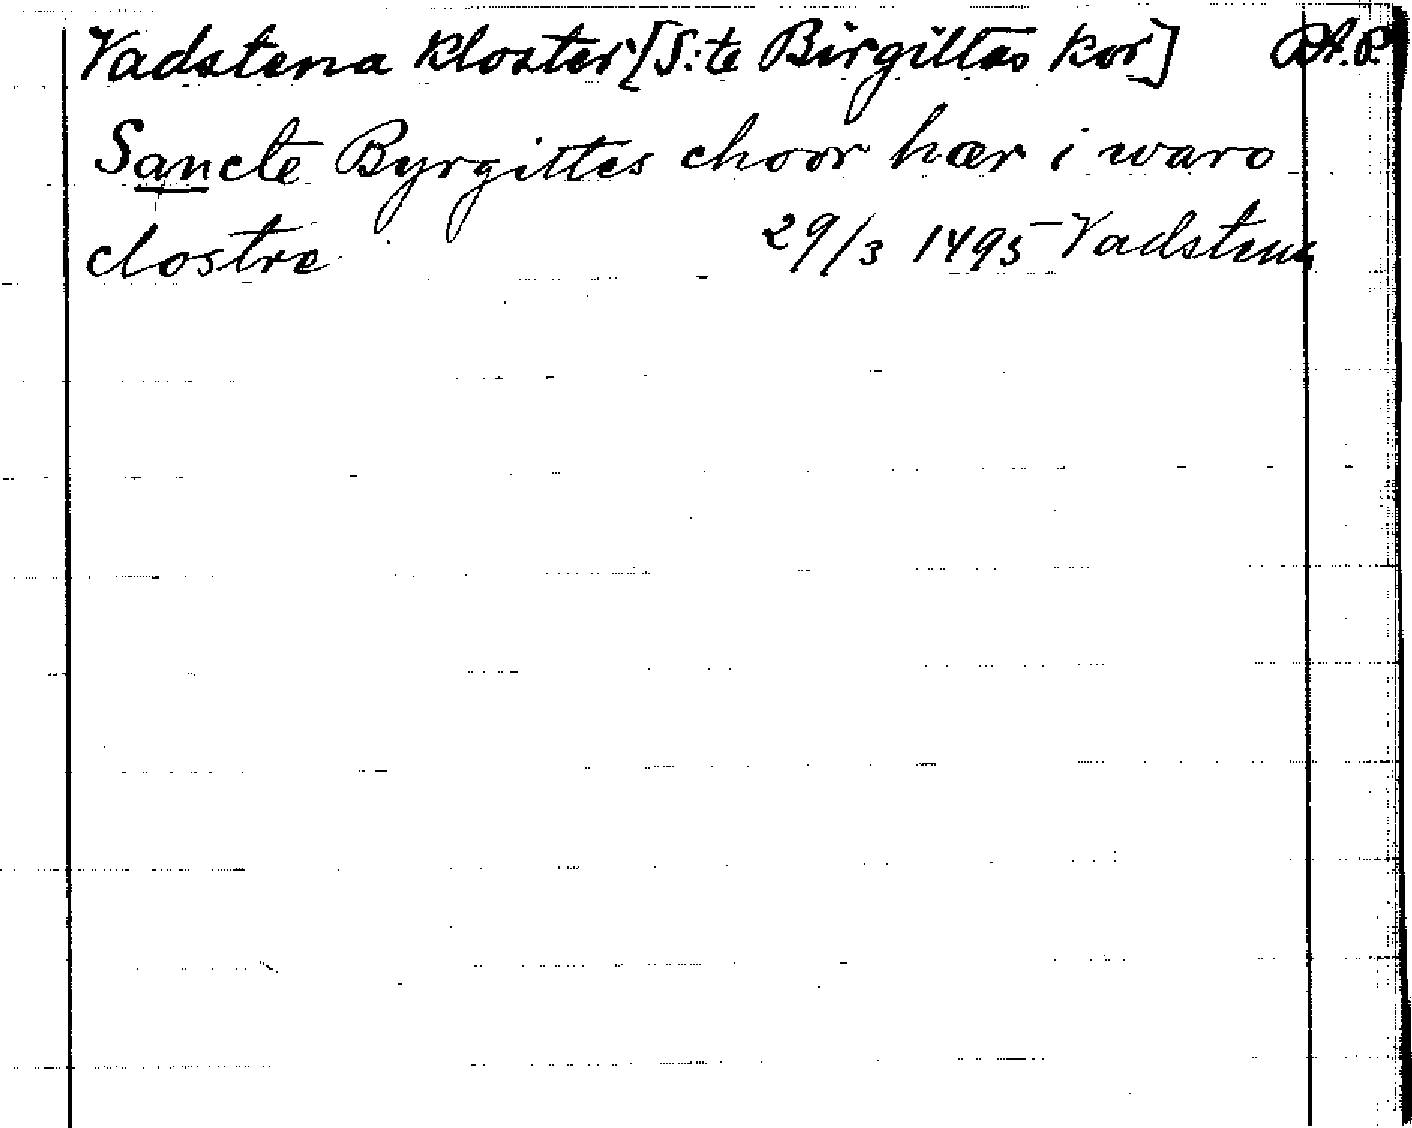 Vadstena kloster [S:te Birgittas kor] RA.P.
Sancte Byrgittes choor hær i waro
clostre 29/3 1495 Vadstena